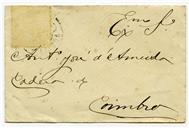 Exmo Sr.
Anto José d'Almeida
Cadeia de
Coimbra